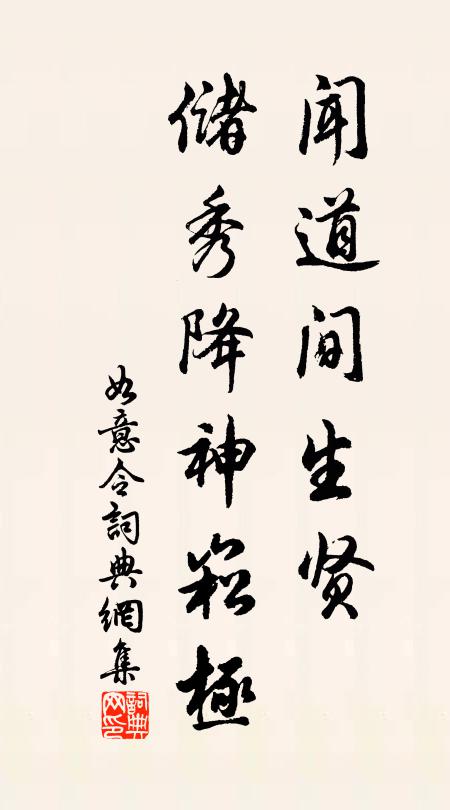 闻道间生贤
儲秀降神崧極
如意令詞典網集
詞典网印